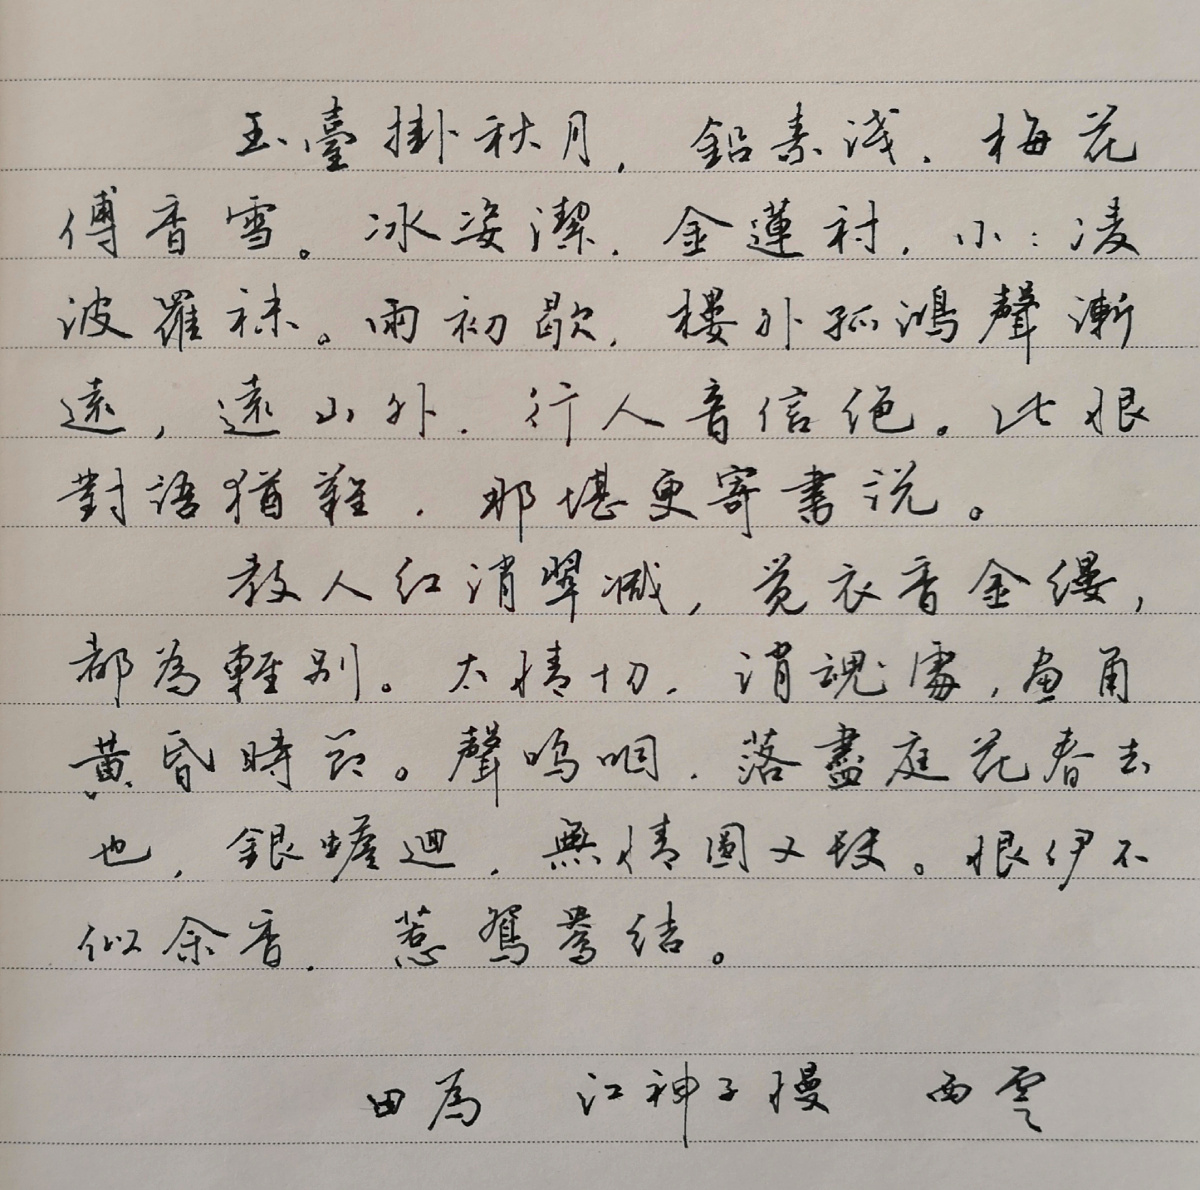 玉臺掛秋月，鉛素淺，梅花
傅香雪。冰姿潔，金蓮襯，小：凌
波羅襪。雨初歇，樓外孤鴻聲漸
遠，遠山外，行人音信絕。此恨
對語猶難，那堪更寄書说。
教人红消翠減，覓衣香金缕，
都為輕别。太情切，消魂處，畫角
黄昏時節。聲嗚咽，落盡庭花春去
也，銀蟾迥，無情圓又缺。恨伊不
似余香，惹鴛鴦结。
田為 江神子慢 西雲